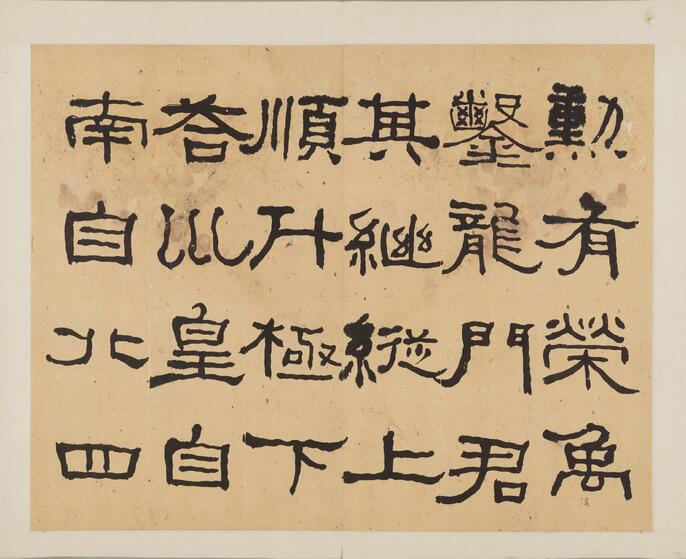 勳有榮禹
鑿龍門君
其繼縱上
順斗極下
荅巛皇自
南自北四